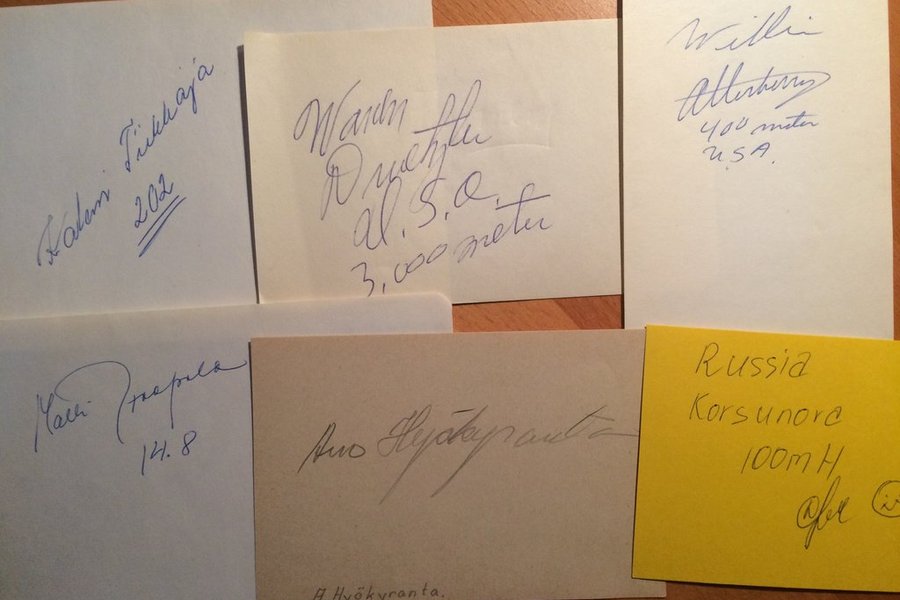 Kaleri Tiekkaja
202
Waren
Druetzler
U.S.A.
3,000 meter
Willie
Atterberry
400 meter
U.S.A.
Matti
14.8
Arvo Hyökyranta
A Hyökyranta.
Russia
Korsunova
100mH